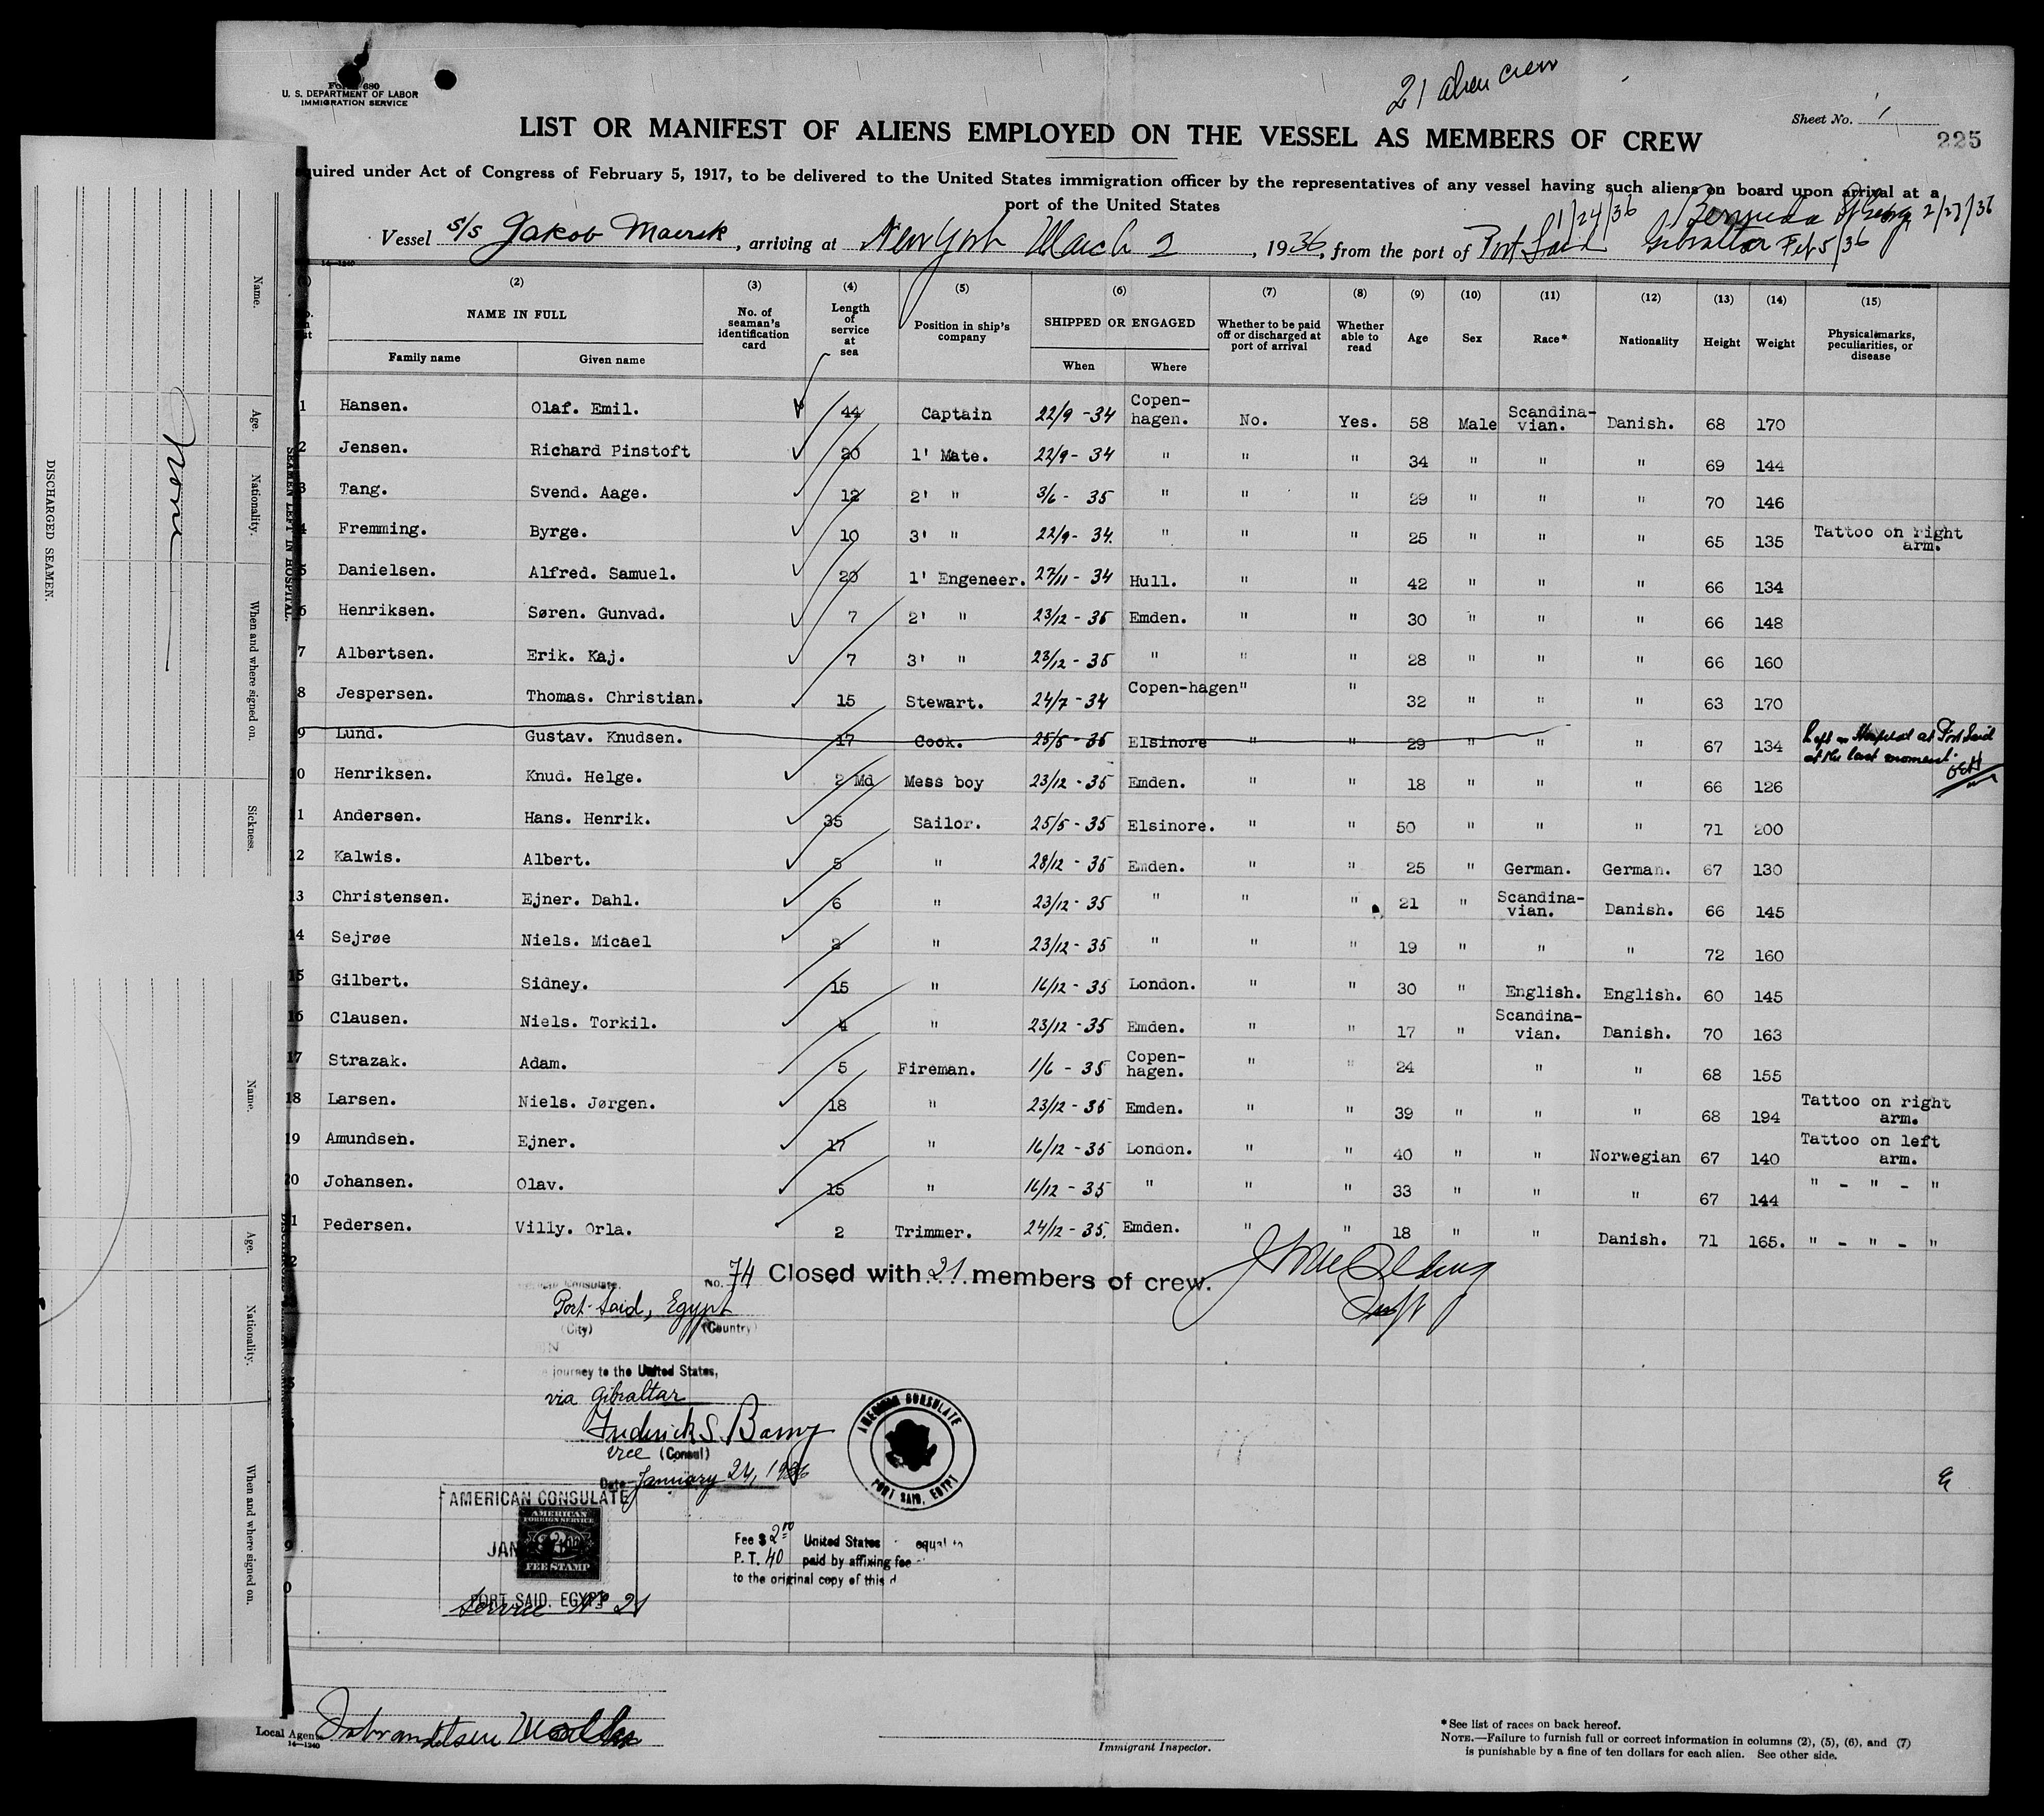 21 alien crew
Form 680
U. S. DEPARTMENT OF LABOR
IMMIGRATION SERVICE
Sheet No. 1
225
LIST OR MANIFEST OF ALIENS EMPLOYED ON THE VESSEL AS MEMBERS OF CREW
quired under Act of Congress of February 5, 1917, to be delivered to the United States immigration officer by the representatives of any vessel having such aliens on board upon arrival at a
port of the United States
1/24/36 Bermuda 2/27/36
Vessel S/S Jakob Maersk, arriving at New York March 2, 1936, from the port of Port Said Gibraltar Feb 5/36
14-1240
(2) (3) (4) (5) (6) (7) (8) (9) (10) (11) (12) (13) (14) (15)
NAME IN FULL No. of seaman's identification card Length of service at sea Position in ship's company SHIPPED OR ENGAGED Whether to be paid off or discharged at port of arrival Whether able to read Age Sex Race* Nationality Height Weight Physical marks, peculiarities, or disease
Family name Given name When Where
1 Hansen. Olaf. Emil. 44 Captain 22/9 - 34 Copen-hagen. No. Yes. 58 Male Scandina-vian. Danish. 68 170
2 Jensen. Richard Pinstoft 20 1' Mate. 22/9 - 34 " " " 34 " " " 69 144
3 Tang. Svend. Aage. 12 2' " 3/6 - 35 " " " 29 " " " 70 146
4 Fremming. Byrge. 10 3' " 22/9 - 34. " " " 25 " " " 65 135 Tattoo on right arm.
5 Danielsen. Alfred. Samuel. 20 1' Engeneer. 27/11 - 34 Hull. " " 42 " " " 66 134
6 Henriksen. Søren. Gunvad. 7 2' " 23/12 - 35 Emden. " " 30 " " " 66 148
7 Albertsen. Erik. Kaj. 7 3' " 23/12 - 35 " " " 28 " " " 66 160
8 Jespersen. Thomas. Christian. 15 Stewart. 24/7 - 34 Copen-hagen " " 32 " " " 63 170
9 Lund. Gustav. Knudsen. 17 Cook. 25/5 - 35 Elsinore " " 29 " " " 67 134 Left in Hospital at Port Said at the last moment. OEH
10 Henriksen. Knud. Helge. 2 Md Mess boy 23/12 - 35 Emden. " " 18 " " " 66 126
11 Andersen. Hans. Henrik. 35 Sailor. 25/5 - 35 Elsinore. " " 50 " " " 71 200
12 Kalwis. Albert. 5 " 28/12 - 35 Emden. " " 25 " German. German. 67 130
13 Christensen. Ejner. Dahl. 6 " 23/12 - 35 " " " 21 " Scandina-vian. Danish. 66 145
14 Sejrøe Niels. Micael 2 " 23/12 - 35 " " " 19 " " " 72 160
15 Gilbert. Sidney. 15 " 16/12 - 35 London. " " 30 " English. English. 60 145
16 Clausen. Niels. Torkil. 4 " 23/12 - 35 Emden. " " 17 " Scandina-vian. Danish. 70 163
17 Strazak. Adam. 5 Fireman. 1/6 - 35 Copen-hagen. " " 24 " " 68 155
18 Larsen. Niels. Jørgen. 18 " 23/12 - 35 Emden. " " 39 " " " 68 194 Tattoo on right arm.
19 Amundsen. Ejner. 17 " 16/12 - 35 London. " " 40 " " Norwegian 67 140 Tattoo on left arm.
20 Johansen. Olav. 15 " 16/12 - 35 " " " 33 " " " 67 144 " - " - "
21 Pedersen. Villy. Orla. 2 Trimmer. 24/12 - 35. Emden. " " 18 " " Danish. 71 165. " - " - "
No. 74 Closed with 21 members of crew.
Consulate,
Port-Said, Egypt
(City) (Country)
journey to the United States,
via Gibraltar
Vice (Consul)
Date January 24, 1936
AMERICAN CONSULATE
PORT SAID, EGYPT
AMERICAN CONSULATE
JAN
AMERICAN
FOREIGN SERVICE
$2.00
FEE STAMP
PORT SAID, EGYPT
Service No 21
Fee $ 2.00 United States equal to
P. T. 40 paid by affixing fee
to the original copy of this
Local Agents
14-1240
Immigrant Inspector.
*See list of races on back hereof.
NOTE.—Failure to furnish full or correct information in columns (2), (5), (6), and (7)
is punishable by a fine of ten dollars for each alien. See other side.
DISCHARGED SEAMEN.
SEAMEN LEFT IN HOSPITAL.
Name. Age. Nationality. When and where signed on. Sickness.
None
Name. Age. Nationality. When and where signed on.